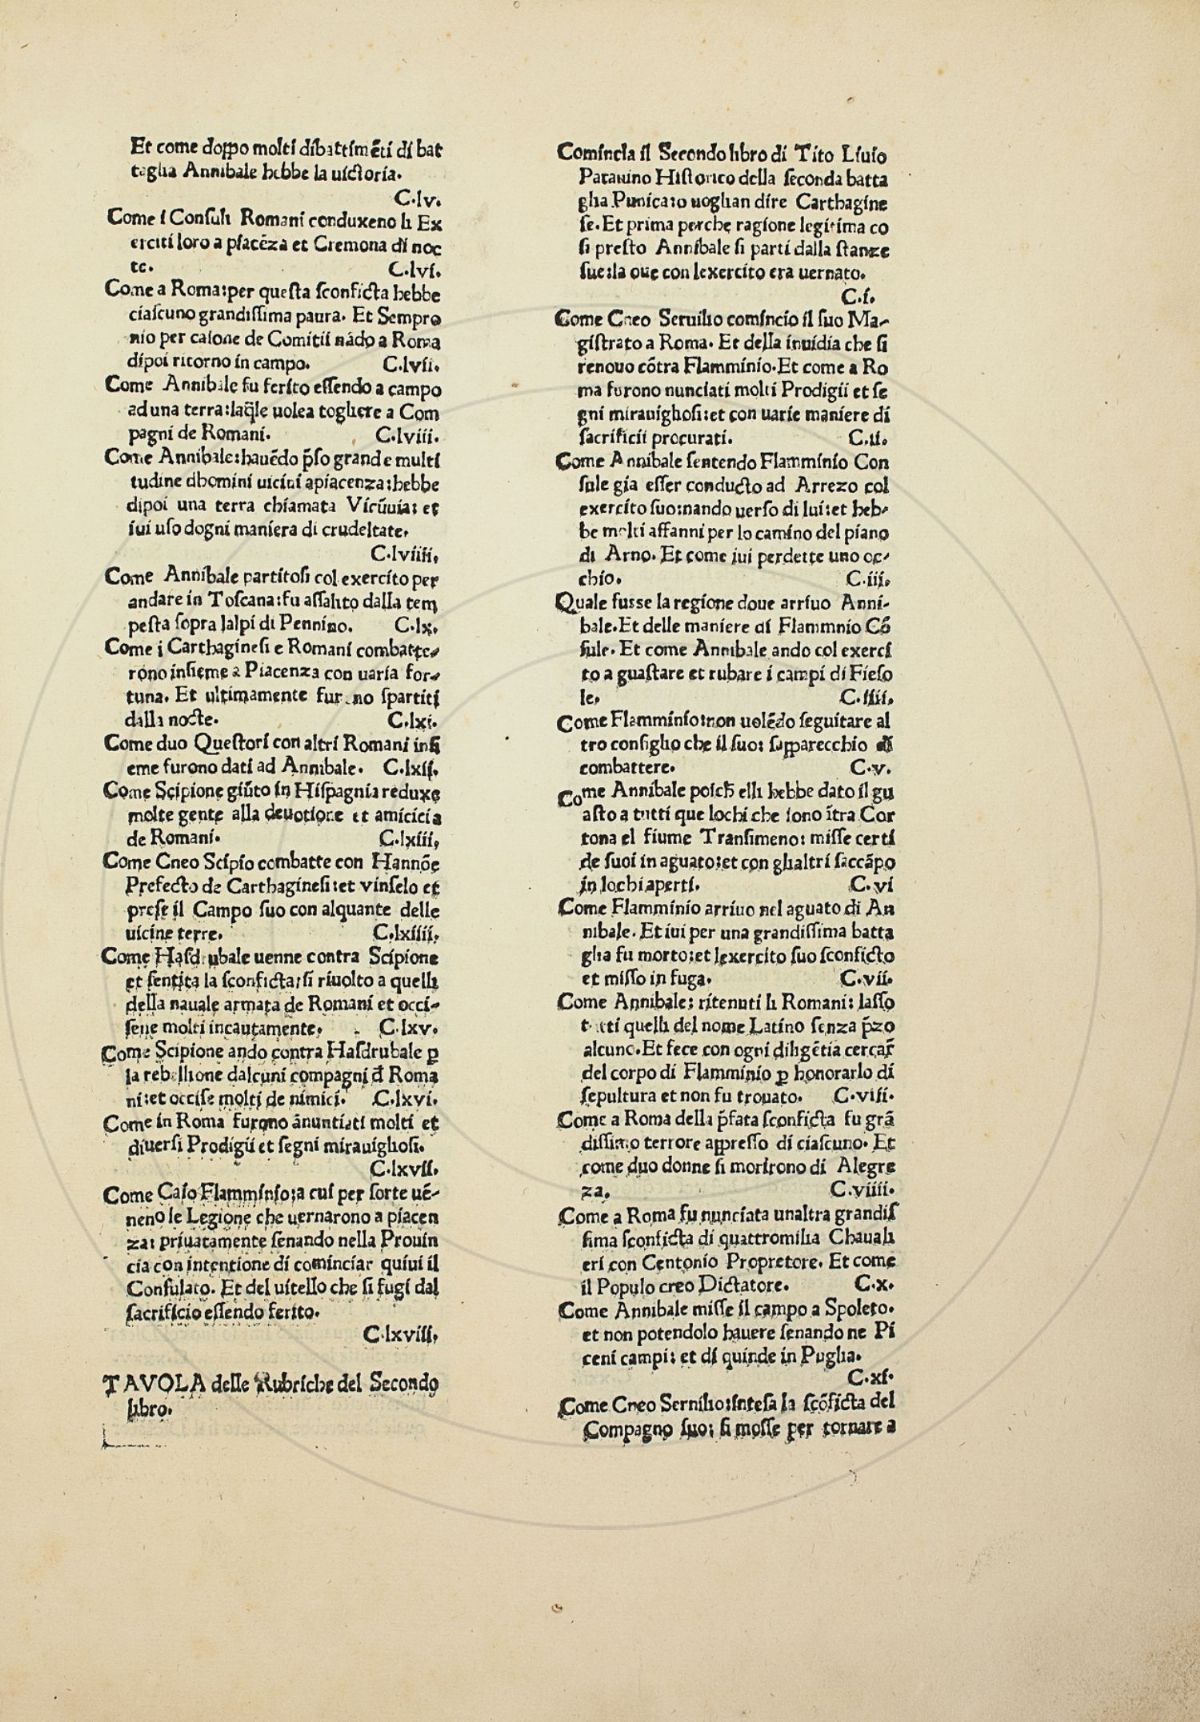 Et come doppo molti dibattimēti di bat
taglia Annibale hebbe la uictoria.
C.lv.
Come i Consuli Romani conduxeno li Ex
erciti loro a piacēza et Cremona di noc
te. C.lvi.
Come a Roma:per questa sconficta hebbe
ciascuno grandissima paura. Et Sempro
nio per caione de Comitii nādo a Roma
dipoi ritorno in campo. C.lvii.
Come Annibale fu ferito essendo a campo
ad una terra:laq̄le uolea togliere a Com
pagni de Romani. C.lviii.
Come Annibale:hauēdo p̄so grande multi
tudine dhomini uicini apiacenza:hebbe
dipoi una terra chiamata Vicūuia: et
iui uso dogni maniera di crudeltate.
C.lviiii.
Come Annibale partitosi col exercito per
andare in Toscana:fu assalito dalla tem
pesta sopra lalpi di Pennino. C.lx.
Come i Carthaginesi e Romani combatte-
rono insieme a Piacenza con uaria for-
tuna. Et ultimamente furono spartiti
dalla nocte. C.lxi.
Come duo Questori con altri Romani insi
eme furono dati ad Annibale. C.lxii.
Come Scipione giūto in Hispagnia reduxe
molte gente alla deuotione et amicicia
de Romani. C.lxiii,
Come Cneo Scipio combatte con Hannōe
Prefecto de Carthaginesi:et vinselo et
prese il Campo suo con alquante delle
uicine terre. C.lxiiii.
Come Hasdrubale uenne contra Scipione
et sentita la sconficta:si riuolto a quelli
della nauale armata de Romani et occi-
sene molti incautamente. C.lxv.
Come Scipione ando contra Hasdrubale ꝑ
la rebellione dalcuni compagni đ Roma
ni:et occise molti de nimici. C.lxvi.
Come in Roma furono ānuntiati molti et
diuersi Prodigii et segni mirauigliosi.
C.lxvii.
Come Caio Flamminio:a cui per sorte uē-
neno le Legione che uernarono a piacen
za: priuatamente senando nella Prouin
cia con intentione di cominciar quiui il
Consulato. Et del uitello che si fugi dal
sacrificio essendo ferito.
C.lxviii.
TAVOLA delle Rubriche del Secondo
libro.
Comincia il Secondo libro di Tito Liuio
Patauino Historico della seconda batta
glia Punica:o uoglian dire Carthagine
se. Et prima perche ragione legitima co
si presto Annibale si parti dalla stanze
sue:la oue con lexercito era uernato.
C.i.
Come Cneo Seruilio comincio il suo Ma-
gistrato a Roma. Et della inuidia che si
renouo cōtra Flamminio.Et come a Ro
ma furono nunciati molti Prodigii et se
gni mirauighosi:et con uarie maniere di
sacrificii procurati. C.ii.
Come Annibale sentendo Flamminio Con
sule gia esser conducto ad Arrezo col
exercito suo:nando uerso di lui:et heb-
be molti affanni per lo camino del piano
di Arno. Et come iui perdette uno oc-
chio. C.iii.
Quale fusse la regione doue arriuo Anni-
bale.Et delle maniere di Flammnio Cō
sule. Et come Annibale ando col exerci
to a guastare et rubare i campi di Fieso
le. C.iiii.
Come Flamminio:non uolēdo seguitare al
tro consiglio che il suo: sapparecchio di
combattere. C.v.
Come Annibale poich̄ elli hebbe dato il gu
asto a tutti que lochi che sono ītra Cor
tona el fiume Transimeno: misse certi
de suoi in aguato:et con glialtri saccāpo
in lochi aperti. C.vi
Come Flamminio arriuo nel aguato di An
nibale. Et iui per una grandissima batta
glia fu morto:et lexercito suo sconficto
et misso in fuga. C.vii.
Come Annibale: ritenuti li Romani: lasso
tutti quelli del nome Latino senza p̄zo
alcuno.Et fece con ogni diligētia cercar̄
del corpo di Flamminio ꝑ honorarlo di
sepultura et non fu trouato. C.viii.
Come a Roma della p̄fata sconficta fu grā
dissimo terrore appresso di ciascuno. Et
come duo donne si morirono di Alegre
za. C.viiii.
Come a Roma fu nunciata unaltra grandis
sima sconficta di quattromilia Chauali
eri con Centonio Propretore. Et come
il Populo creo Dictatore. C.x.
Come Annibale misse il campo a Spoleto.
et non potendolo hauere senando ne Pi
ceni campi: et di quinde in Puglia.
C.xi.
Come Cneo Sernilio:intesa la scōficta del
Compagno suo: si mosse per tornare a